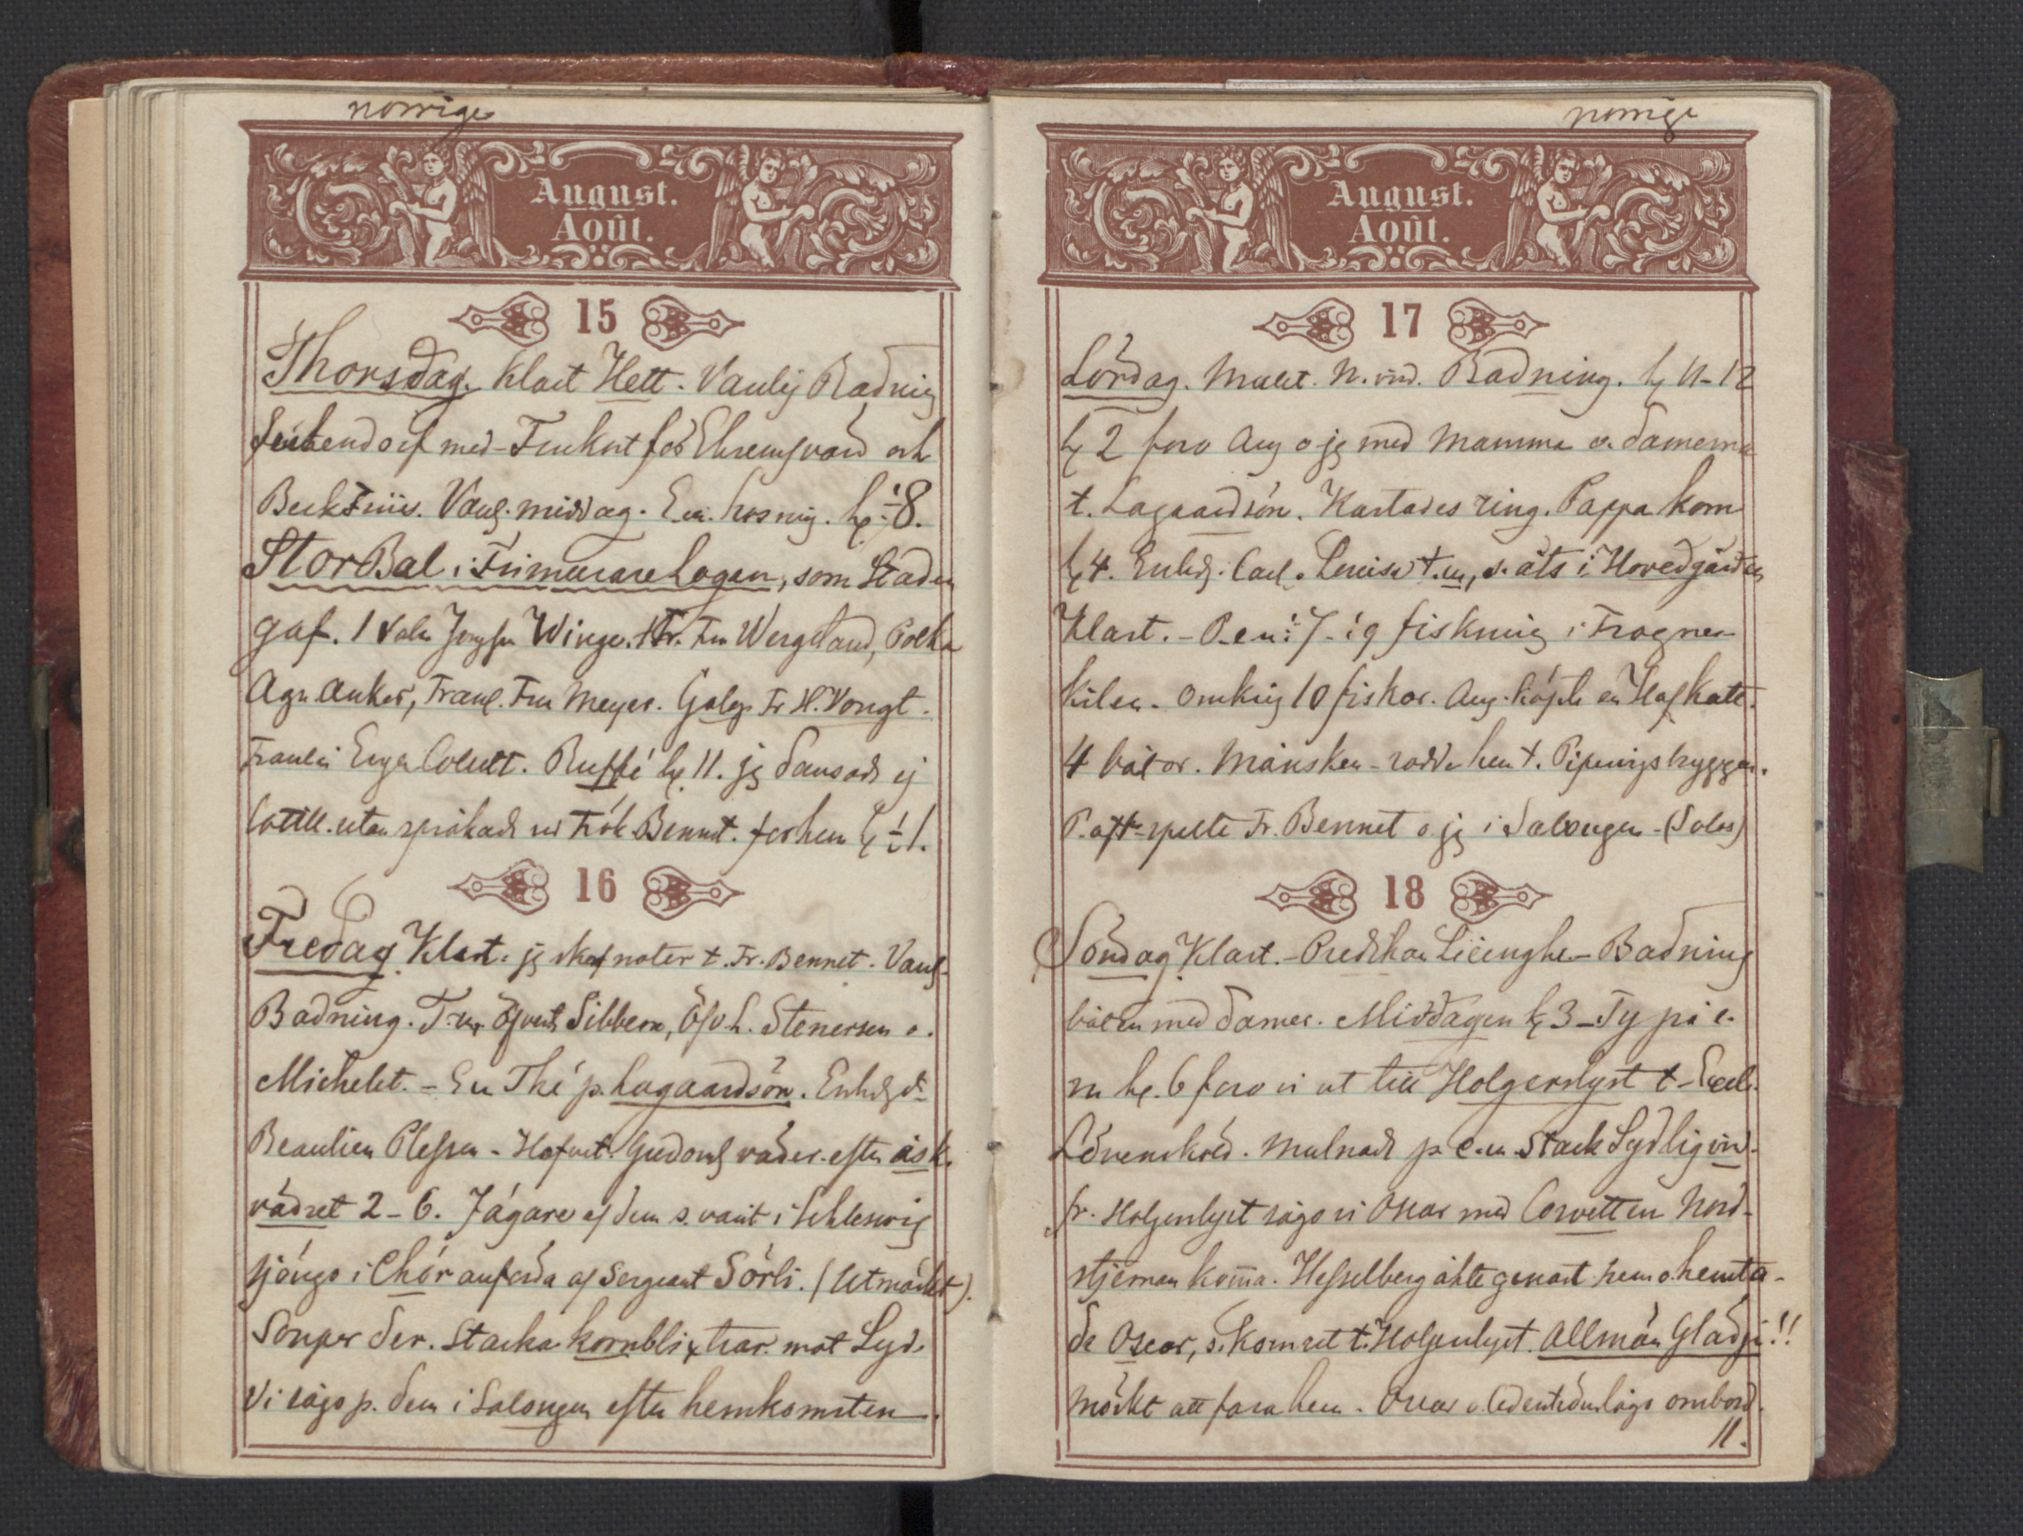 norrige
August.
Août.
15
Thorsdag. Klart Hett. Vanlig Badnig
med Frukost för Ehrensvärd och
Beck Friis. Vanl. middag. E.m. hos mig. kl. ½8.
Stor Bal i Frimurare Logen, som Staden
gaf. 1 Vals Jungfr Winge. Fr. Fru Wergeland, Polka
Agn Anker, Franç. Fru Meyer. Galop Fr H. Vongt.
Collett. Buffé kl. 11. jg dansade ej
Cotill. utan språkade Frök Bennet. for hem kl ½1.
16
Fredag. Klart. jg skref noter t. Fr. Bennet. Vanl.
Badning. Öfverstl Sibbern, Öfv.L. Stenersen o.
Michelet. – En Thé p. Lagaardsön.
Beaulieu Plessen – Gudoml väder efter åsk-
vädret 2–6. Jägare af dem s. varit i Schleswig
sjöngo i Chör anförda af Sergeant Sörli. (Utmärkt).
Souper der. Starka kornblixtrar mot Syd.
Vi sågo p. dem i Salongen efter hemkomsten.
norrige
August.
Août.
17
Lördag. Mulet. N. vnd. Badning. kl 11–12
kl 2 foro Aug o jg med Mamma o. damerna
t. Lagaardsön. Kastades ring. Pappa kom
kl 4. Carl o Louise t. m, s. åts i Hovedgården
Klart. – P. e.m. ½7–½9 fiskning i Frogner-
kilen. Omkrig 10 fiskar. Aug. köpte en Haf Katt.
4 båtar. Månsken – rodde hem t. Pipervigsbryggan.
P. aft. spelte Fr. Bennet o jg i Salongen – (Solos)
18
Söndag. Klart. – Predikan – Badning
båten med damer. Middagen kl 3 – Ty på e.
m kl. 6 foro vi ut till Holgerslyst t – Excell.
Lövenskiöld. Mulnade p e.m. Stark Sydlig vnd.
fr. Holgerslyst sågo vi Oscar med Corvetten Nord-
stjernan komma. Hesselberg åkte genast hem o hemta-
de Oscar, s. kom ut t. Holgerslyst. Allmän Glädje!!
Mörkt att fara hem. Oscar ombord.
11.